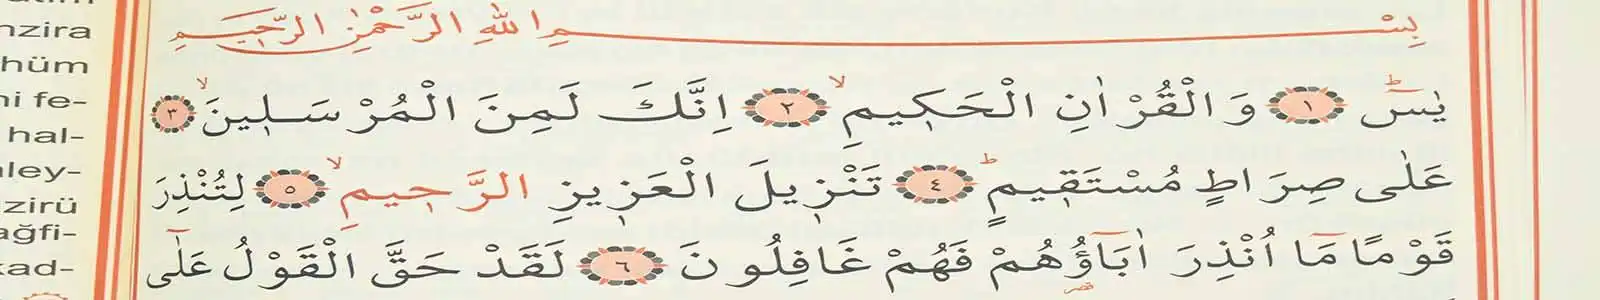 بِسْمِ اللّٰهِ الرَّحْمٰنِ الرَّحٖيمِ
يٰسٓ ﴿١﴾ وَالْقُرْاٰنِ الْحَكٖيمِ ﴿٢﴾ اِنَّكَ لَمِنَ الْمُرْسَلٖينَ ﴿٣﴾
عَلٰى صِرَاطٍ مُسْتَقٖيمٍ ﴿٤﴾ تَنْزٖيلَ الْعَزٖيزِ الرَّحٖيمِ ﴿٥﴾ لِتُنْذِرَ
قَوْمًا مَٓا اُنْذِرَ اٰبَٓاؤُ۬هُمْ فَهُمْ غَافِلُونَ ﴿٦﴾ لَقَدْ حَقَّ الْقَوْلُ عَلٰٓى
nzira
hüm
ni fe-
hal-
aley-
zirü
ağfi-
kad-